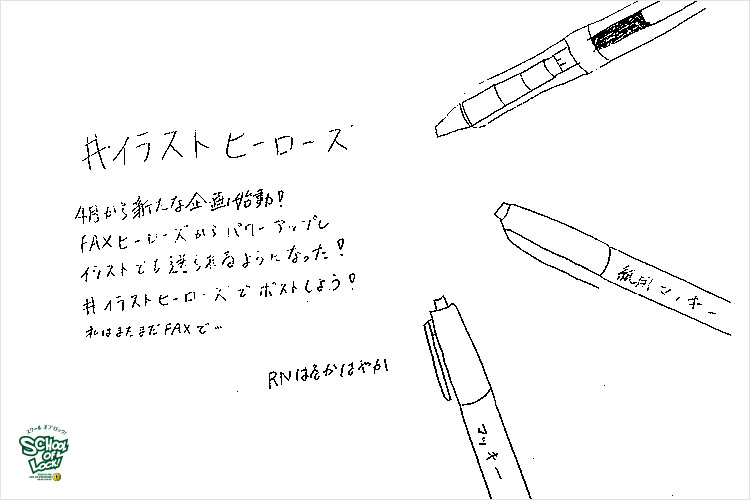 #イラストヒーローズ
4月から新たな企画始動!
FAXヒーローズからパワーアップし
イラストでも送られるようになった!
#イラストヒーローズでポストしよう!
私はまだまだFAXで…
RNはるかはやか
紙用マッキー
マッキー
スクール オブ ロック!
SCHOOL
OF
LOCK!